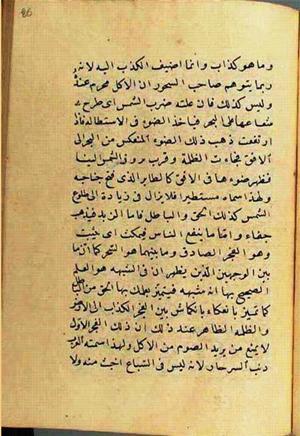 وما هو كذاب وانما اضيف الكذب اليه لانه
ربما يتوهم صاحب السحور ان الاكل محرم عنده
وليس كذلك فان علته ضرب الشمس اى طرح
شعاعها على البحر فياخذ الضوء فى الاستطالة فاذا
ارتفعت ذهب ذلك الضوء المنعكس من البحر الى
الافق فجاءت الظلمة وقرب بروز الشمس الينا
فظهر ضوءها فى الافق كالطاير الذى فتح جناحيه
ولهذا سماه مستطيرا فلا يزال فى زيادة الى طلوع
الشمس كذلك الحق والباطل فاما الزبد فيذهب
جفاء واما ما ينفع الناس فيمكث اى يثبت
وهو الفجر الصادق وما بينهما هو السحر كما ان ما
بين الوجهين الذين يظهران فى الشبهه هو العلم
الصحيح بها انه شبهه فيتميز بعلمك بها الحق من
كما تتميز بانعكاه بانكماش بين الفجر الكذاب الى الاول
والظلمه الظاهر عند ذلك ان ذلك الفجر الاول
لا يمنع من يريد الصوم من الاكل ولهذا اسمته العرب
ذنب السرحان لانه ليس فى السباع اخبث منه ولا